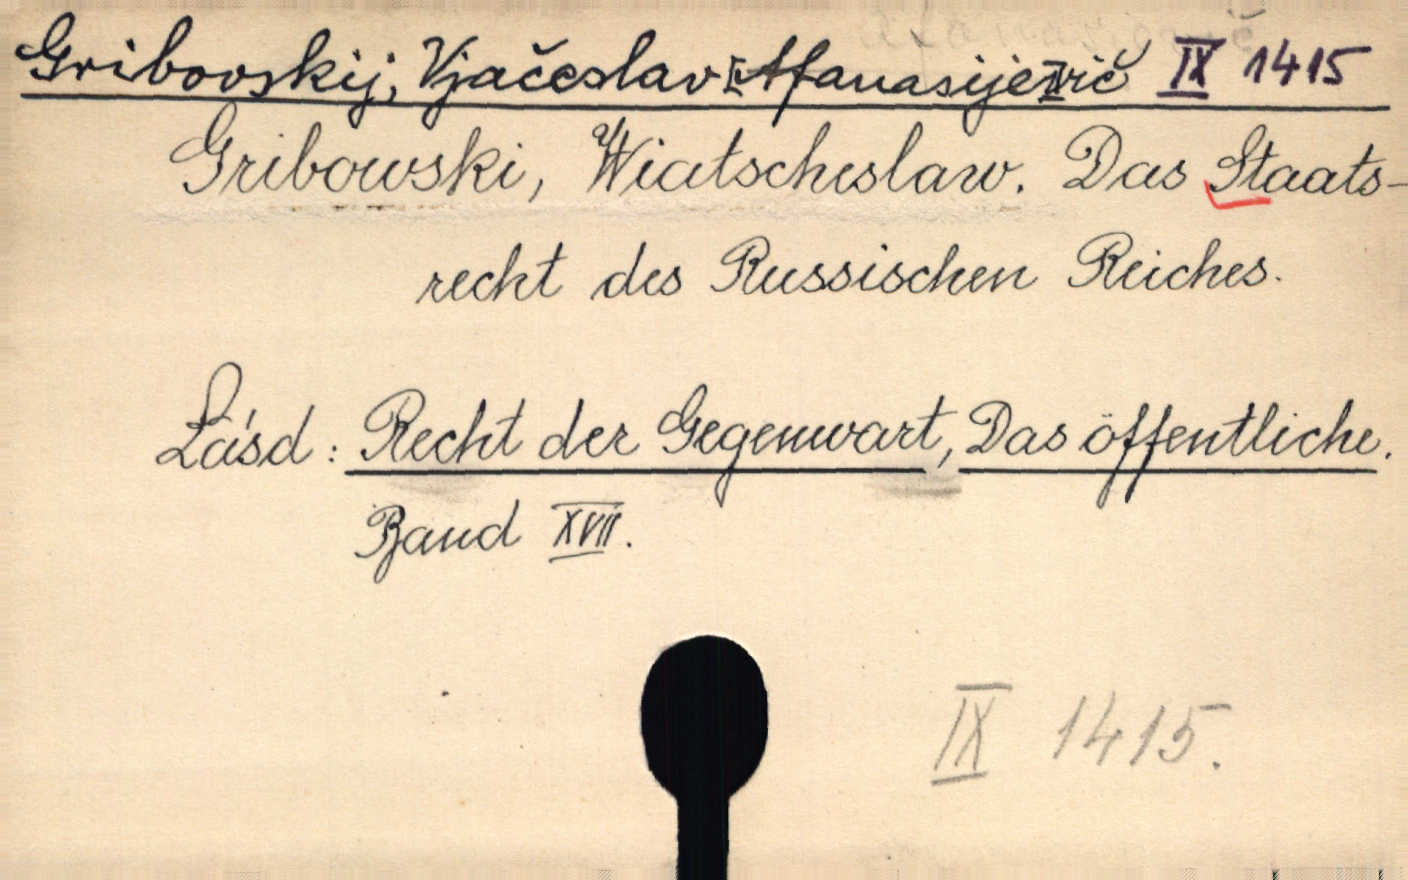 Gribovskij, Vjačeslav [Afanasijevič] IX 1415
Gribowski, Wiatscheslaw. Das Staats-
recht des Russischen Reiches.
Lásd: Recht der Gegenwart, Das öffentliche.
Band XVII.
IX 1415.